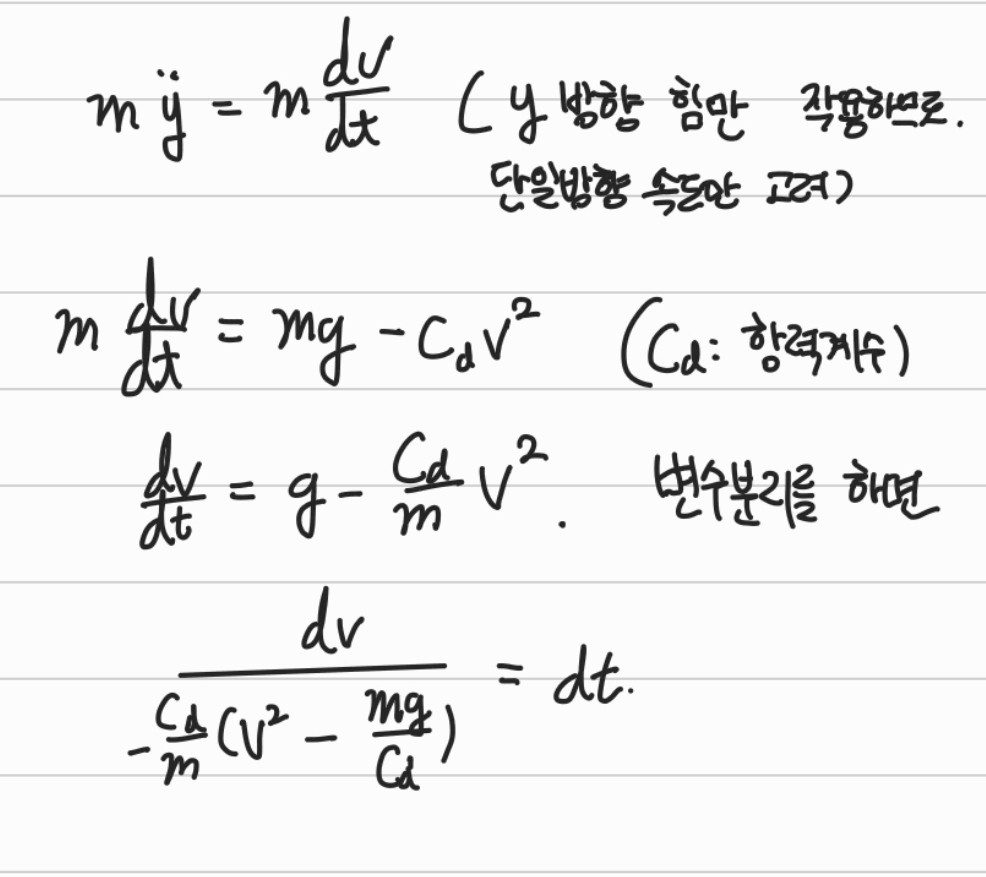 m ÿ = m dv/dt (y 방향 힘만 작용하므로.
단일방향 속도만 고려)
m dv/dt = mg - C_d v² (C_d: 항력계수)
dv/dt = g - C_d/m v². 변수분리를 하면
dv / (-C_d/m (v² - mg/C_d)) = dt.